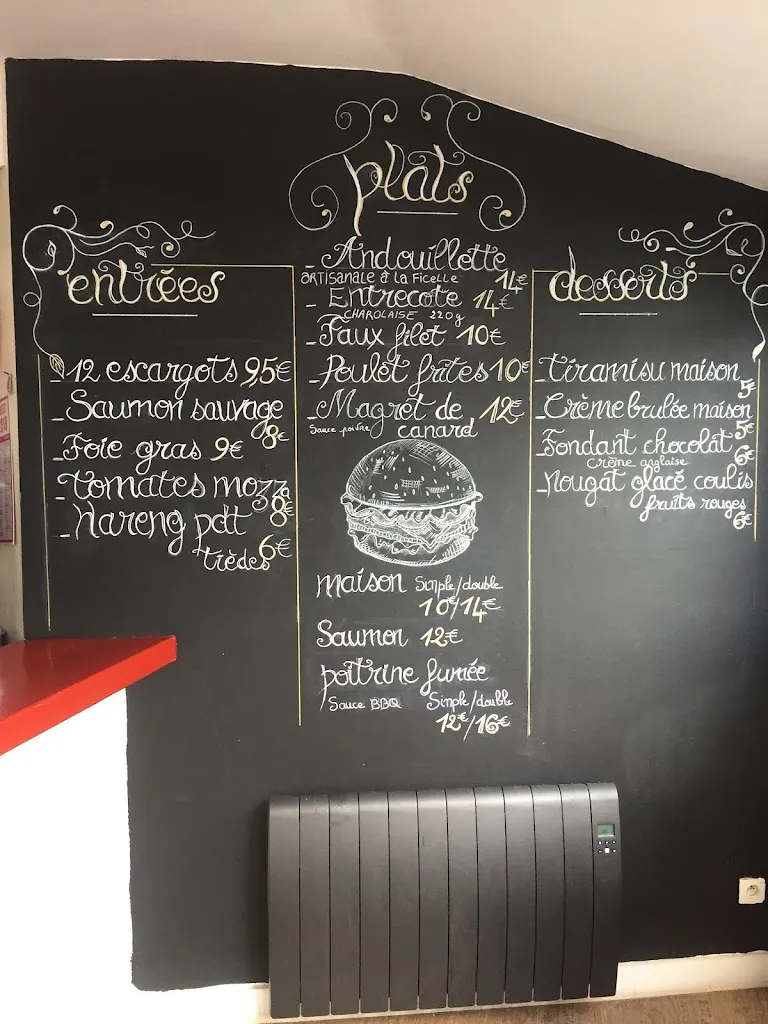 entrées
- 12 escargots 95€
- Saumon sauvage
8€
- Foie gras 9€
- Tomates mozza
8€
- Hareng pdt
trèdes 6€
plats
- Andouillette
ARTISANALE à LA FICELLE 14€
- Entrecote 14€
CHAROLAISE 220g
- Faux filet 10€
- Poulet frites 10€
- Magret de 12€
Sauce poivre canard
maison Simple/double
10€/14€
Saumon 12€
poitrine fumée
Sauce BBQ Simple/double
12€/16€
desserts
- Tiramisu maison
5€
- Crème brulée maison
5€
- Fondant chocolat
Crème anglaise 6€
- Nougat glacé coulis
fruits rouges
6€